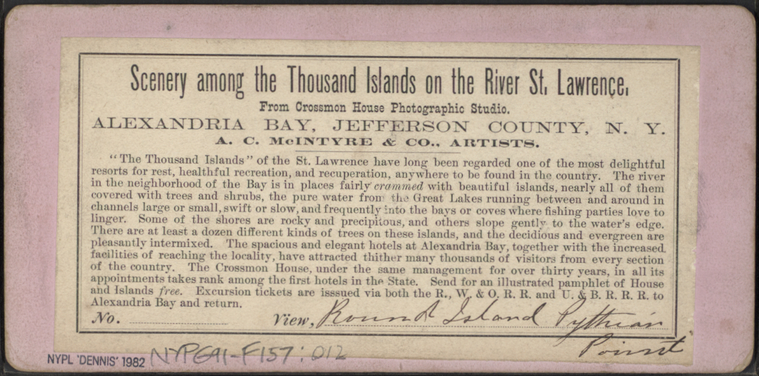 Scenery among the Thousand Islands on the River St. Lawrence,
From Crossmon House Photographic Studio.
ALEXANDRIA BAY, JEFFERSON COUNTY, N. Y.
A. C. McINTYRE & CO., ARTISTS.
"The Thousand Islands" of the St. Lawrence have long been regarded one of the most delightful
resorts for rest, healthful recreation, and recuperation, anywhere to be found in the country. The river
in the neighborhood of the Bay is in places fairly crammed with beautiful islands, nearly all of them
covered with trees and shrubs, the pure water from the Great Lakes running between and around in
channels large or small, swift or slow, and frequently into the bays or coves where fishing parties love to
linger. Some of the shores are rocky and precipitous, and others slope gently to the water's edge.
There are at least a dozen different kinds of trees on these islands, and the decidious and evergreen are
pleasantly intermixed. The spacious and elegant hotels at Alexandria Bay, together with the increased
facilities of reaching the locality, have attracted thither many thousands of visitors from every section
of the country. The Crossmon House, under the same management for over thirty years, in all its
appointments takes rank among the first hotels in the State. Send for an illustrated pamphlet of House
and Islands free. Excursion tickets are isssued via both the R., W. & O. R. R. and U. & B. R. R. R. to
Alexandria Bay and return.
No. View, Round Island Pythian
Point
NYPL 'DENNIS' 1982 NYPG91-F157:012